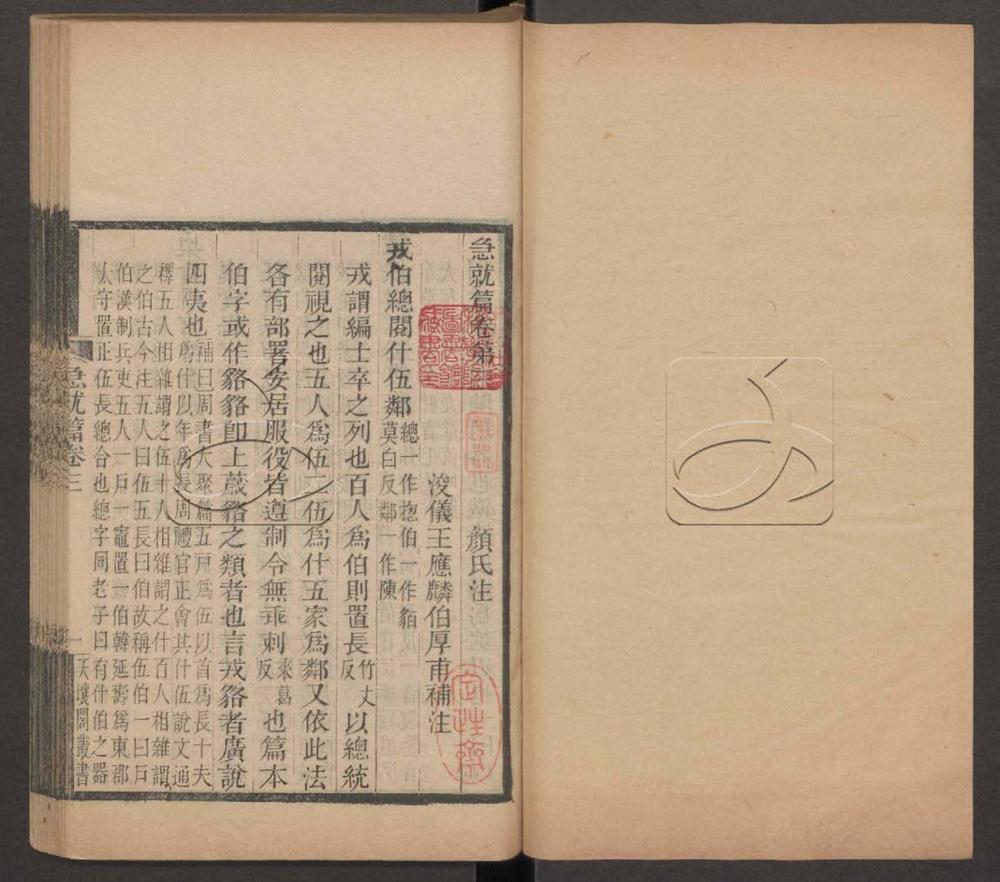 急就篇卷第三　顏氏注
浚儀王應麟伯厚甫補注
戎伯總閱什伍鄰總一作揔伯一作貊
莫白反鄰一作陳
戎謂編士卒之列也百人爲伯則置長竹丈反以總統
閱視之也五人爲伍二伍爲什五家爲鄰又依此法
各有部署安居服役皆遵制令無乖刺來葛反也篇本
伯字或作貉貉卽上蕆貉之類者也言戎貉者廣說
四夷也補曰周書大聚篇五戶爲伍以首爲長十夫
爲什以年爲長周禮官正會其什伍說文通
釋五人相雜謂之伍十人相雜謂之什百人相雜謂
之伯古今注五人曰伍五長曰伯故稱伍伯一曰戶
伯漢制兵吏五人一戶一竈置一伯韓延壽爲東郡
太守置正伍長總合也總字同老子曰有什伯之器
急就篇卷三　一　天壤閣叢書